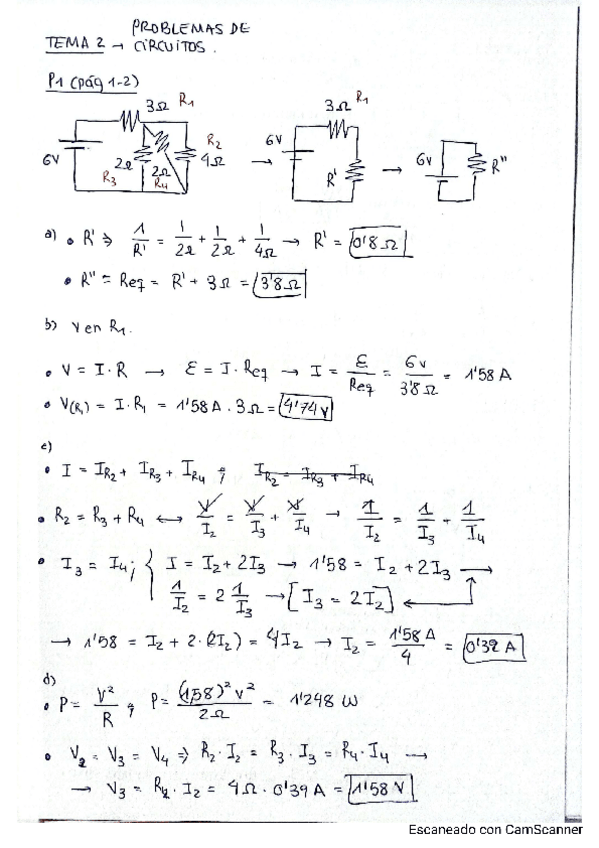 PROBLEMAS DE
TEMA 2 → CIRCUITOS.
P1 (pág 1-2)
3Ω R1
6V
2Ω
R3
2Ω
R4
R2
4Ω
→
3Ω R1
6V
R'
→
6V
R''
a) • R' ⇒ 1/R' = 1/2Ω + 1/2Ω + 1/4Ω → R' = 0'8Ω
• R'' = Req = R' + 3Ω = 3'8Ω
b) V en R1.
• V = I·R → Ɛ = I·Req → I = Ɛ/Req = 6V/3'8Ω = 1'58 A
• V(R1) = I·R1 = 1'58A·3Ω = 4'74V
c)
• I = IR2 + IR3 + IR4 ; IR2 = IR3 + IR4
• R2 = R3 + R4 ↔ V/I2 = V/I3 + V/I4 → 1/I2 = 1/I3 + 1/I4
• I3 = I4; { I = I2 + 2I3 → 1'58 = I2 + 2I3 →
1/I2 = 2 1/I3 → [I3 = 2I2] ←
→ 1'58 = I2 + 2·(2I2) = 4I2 → I2 = 1'58A/4 = 0'39 A
d)
• P = V²/R ; P = (1,58)² V²/2Ω = 1'248 W
• V2 = V3 = V4 ⇒ R2·I2 = R3·I3 = R4·I4 →
→ V3 = R2·I2 = 4Ω·0'39A = 1'58 V
Escaneado con CamScanner